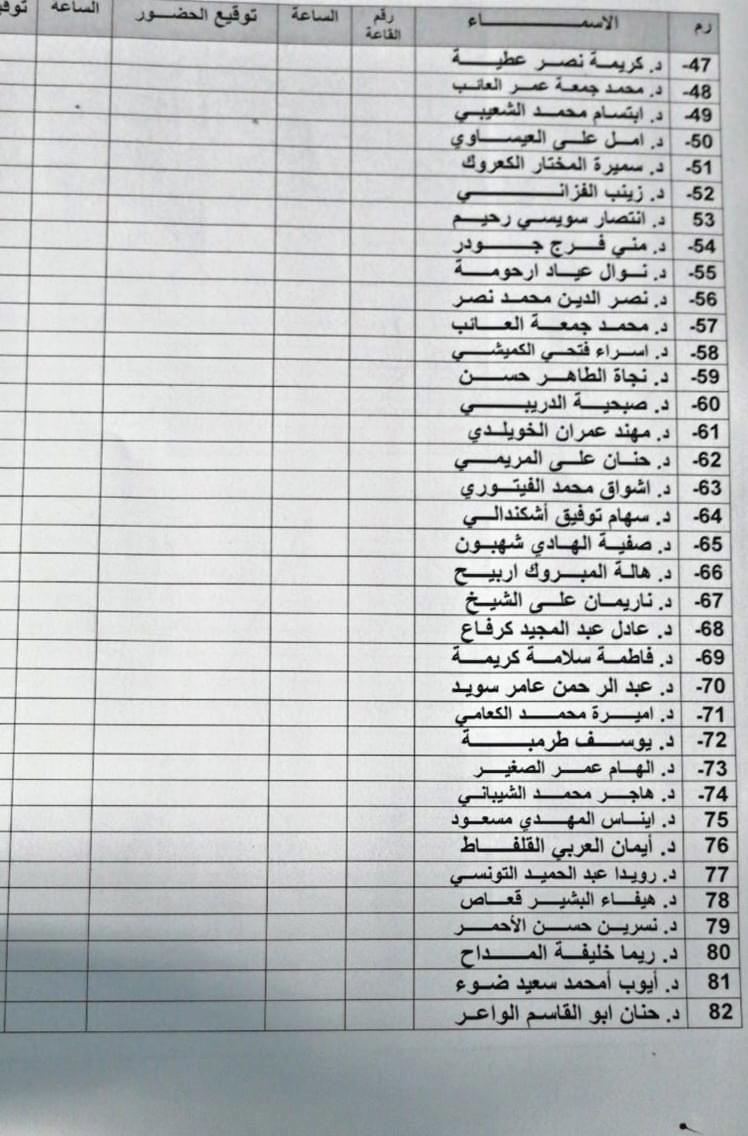 رم الاسماء رقم القاعة الساعة توقيع الحضور الساعة
47- د. كريمة نصر عطية
48- د. محمد جمعة عمر العائب
49- د. ابتسام محمد الشعيبي
50- د. امل على العيساوي
51- د. سميرة المختار الكعروك
52- د. زينب الفزاني
53 د. انتصار سويسي رحيم
54- د. مني فرج جودر
55- د. نوال عياد ارحومة
56- د. نصر الدين محمد نصر
57- د. محمد جمعة العائب
58- د. اسراء فتحي الكميشي
59- د. نجاة الطاهر حسن
60- د. صبحية الدريبي
61- د. مهند عمران الخويلدي
62- د. حنان على المريمي
63- د. اشواق محمد الفيتوري
64- د. سهام توفيق أشكندالي
65- د. صفية الهادي شهبون
66- د. هالة المبروك اربيح
67- د. ناريمان على الشيخ
68- د. عادل عبد المجيد كرفاع
69- د. فاطمة سلامة كريمة
70- د. عبد الر حمن عامر سويد
71- د. اميرة محمد الكعامي
72- د. يوسف طرمبة
73- د. الهام عمر الصغير
74- د. هاجر محمد الشيباني
75 د. ايناس المهدي مسعود
76 د. أيمان العربي القلفاط
77 د. رويدا عبد الحميد التونسي
78 د. هيفاء البشير قعاص
79 د. نسرين حسن الأحمر
80 د. ريما خليفة المداح
81 د. أيوب أمحمد سعيد ضوء
82 د. حنان ابو القاسم الواعر